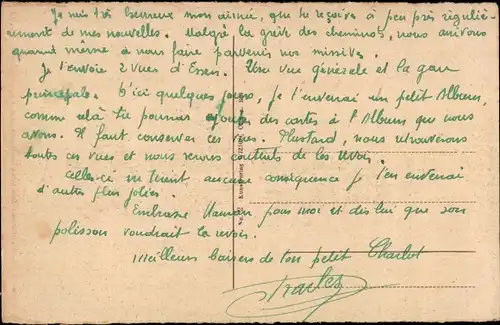 Je suis très heureux mon aimée, que tu reçoives à peu près réguliè-
rement de mes nouvelles. Malgré la grève des cheminots, nous arrivons
quand même à nous faire parvenir nos missives.
Je t'envoie 2 vues d'Essen. Une vue générale et la gare
principale. D'ici quelques jours, je t'enverrai un petit Album,
comme celà tu pourras ajouter des cartes à l'Album que nous
avons. Il faut conserver ces vues. Plus tard, nous retrouverons
toutes ces vues et nous serons contents de les revoir.
Celles-ci n'étant aucune conséquence je t'en enverrai
d'autres plus jolies.
Embrasse Maman pour moi et dis lui que son
polisson voudrait la revoir.
Meilleurs baisers de ton petit Charlot
Charles